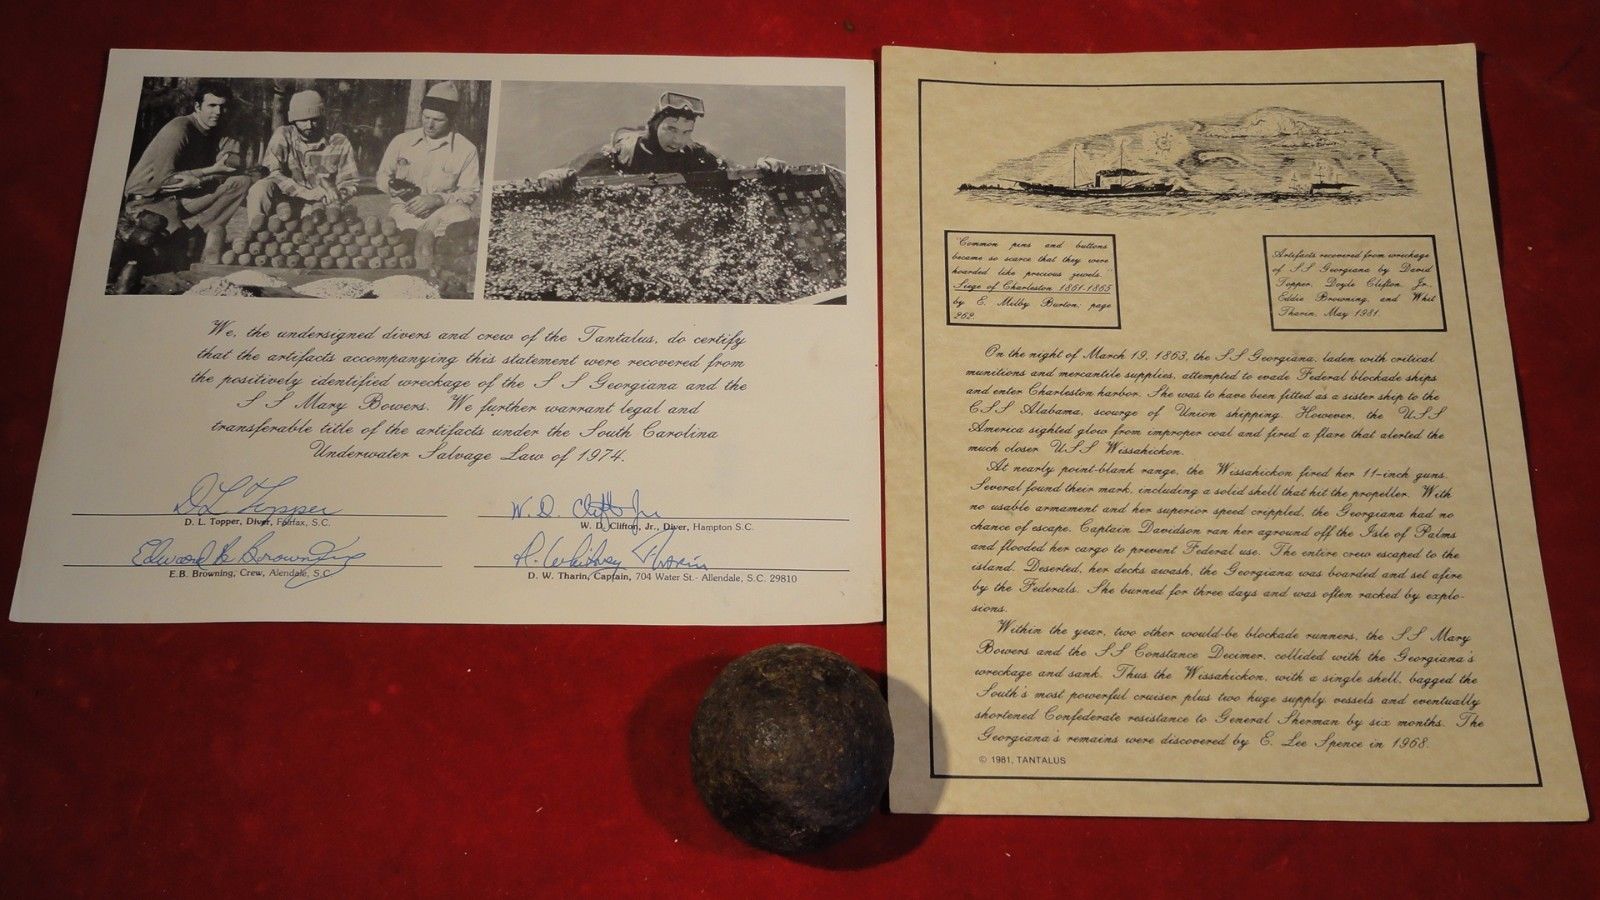 We, the undersigned divers and crew of the Tantalus, do certify
that the artifacts accompanying this statement were recovered from
the positively identified wreckage of the S S Georgiana and the
S S Mary Bowers. We further warrant legal and
transferable title of the artifacts under the South Carolina
Underwater Salvage Law of 1974.
D L Topper
D. L. Topper, Diver, Fairfax, S.C.
W. D. Clifton Jr
W. D. Clifton, Jr., Diver, Hampton S.C.
Edward B Browning
E.B. Browning, Crew, Alendale, S.C.
Whitney Tharin
D. W. Tharin, Captain, 704 Water St.- Allendale, S.C. 29810
"Common pins and buttons
became so scarce that they were
hoarded like precious jewels."
Siege of Charleston 1861-1865
by E. Milby Burton; page
262.
Artifacts recovered from wreckage
of SS Georgiana by David
Topper, Doyle Clifton, Jr.,
Eddie Browning, and Whit
Tharin, May 1981.
On the night of March 19, 1863, the SS Georgiana, laden with critical
munitions and mercantile supplies, attempted to evade Federal blockade ships
and enter Charleston harbor. She was to have been fitted as a sister ship to the
CSS Alabama, scourge of Union shipping. However, the USS
America sighted glow from improper coal and fired a flare that alerted the
much closer USS Wissahickon.
At nearly point-blank range, the Wissahickon fired her 11-inch guns.
Several found their mark, including a solid shell that hit the propeller. With
no usable armament and her superior speed crippled, the Georgiana had no
chance of escape. Captain Davidson ran her aground off the Isle of Palms
and flooded her cargo to prevent Federal use. The entire crew escaped to the
island. Deserted, her decks awash, the Georgiana was boarded and set afire
by the Federals. She burned for three days and was often racked by explo-
sions.
Within the year, two other would-be blockade runners, the SS Mary
Bowers and the SS Constance Decimer, collided with the Georgiana's
wreckage and sank. Thus the Wissahickon, with a single shell, bagged the
South's most powerful cruiser plus two huge supply vessels and eventually
shortened Confederate resistance to General Sherman by six months. The
Georgiana's remains were discovered by E. Lee Spence in 1968.
© 1981, TANTALUS